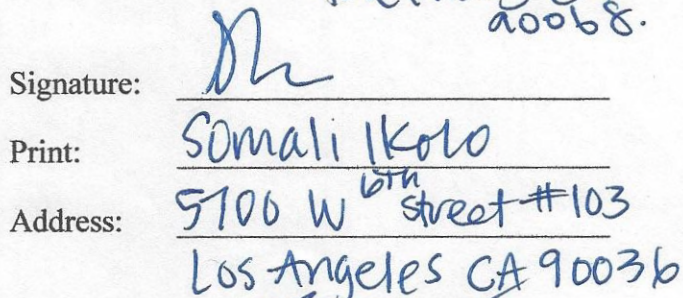 90068.
Signature:
Print: Somali Ikolo
Address: 5700 W 6th street #103
Los Angeles CA 90036